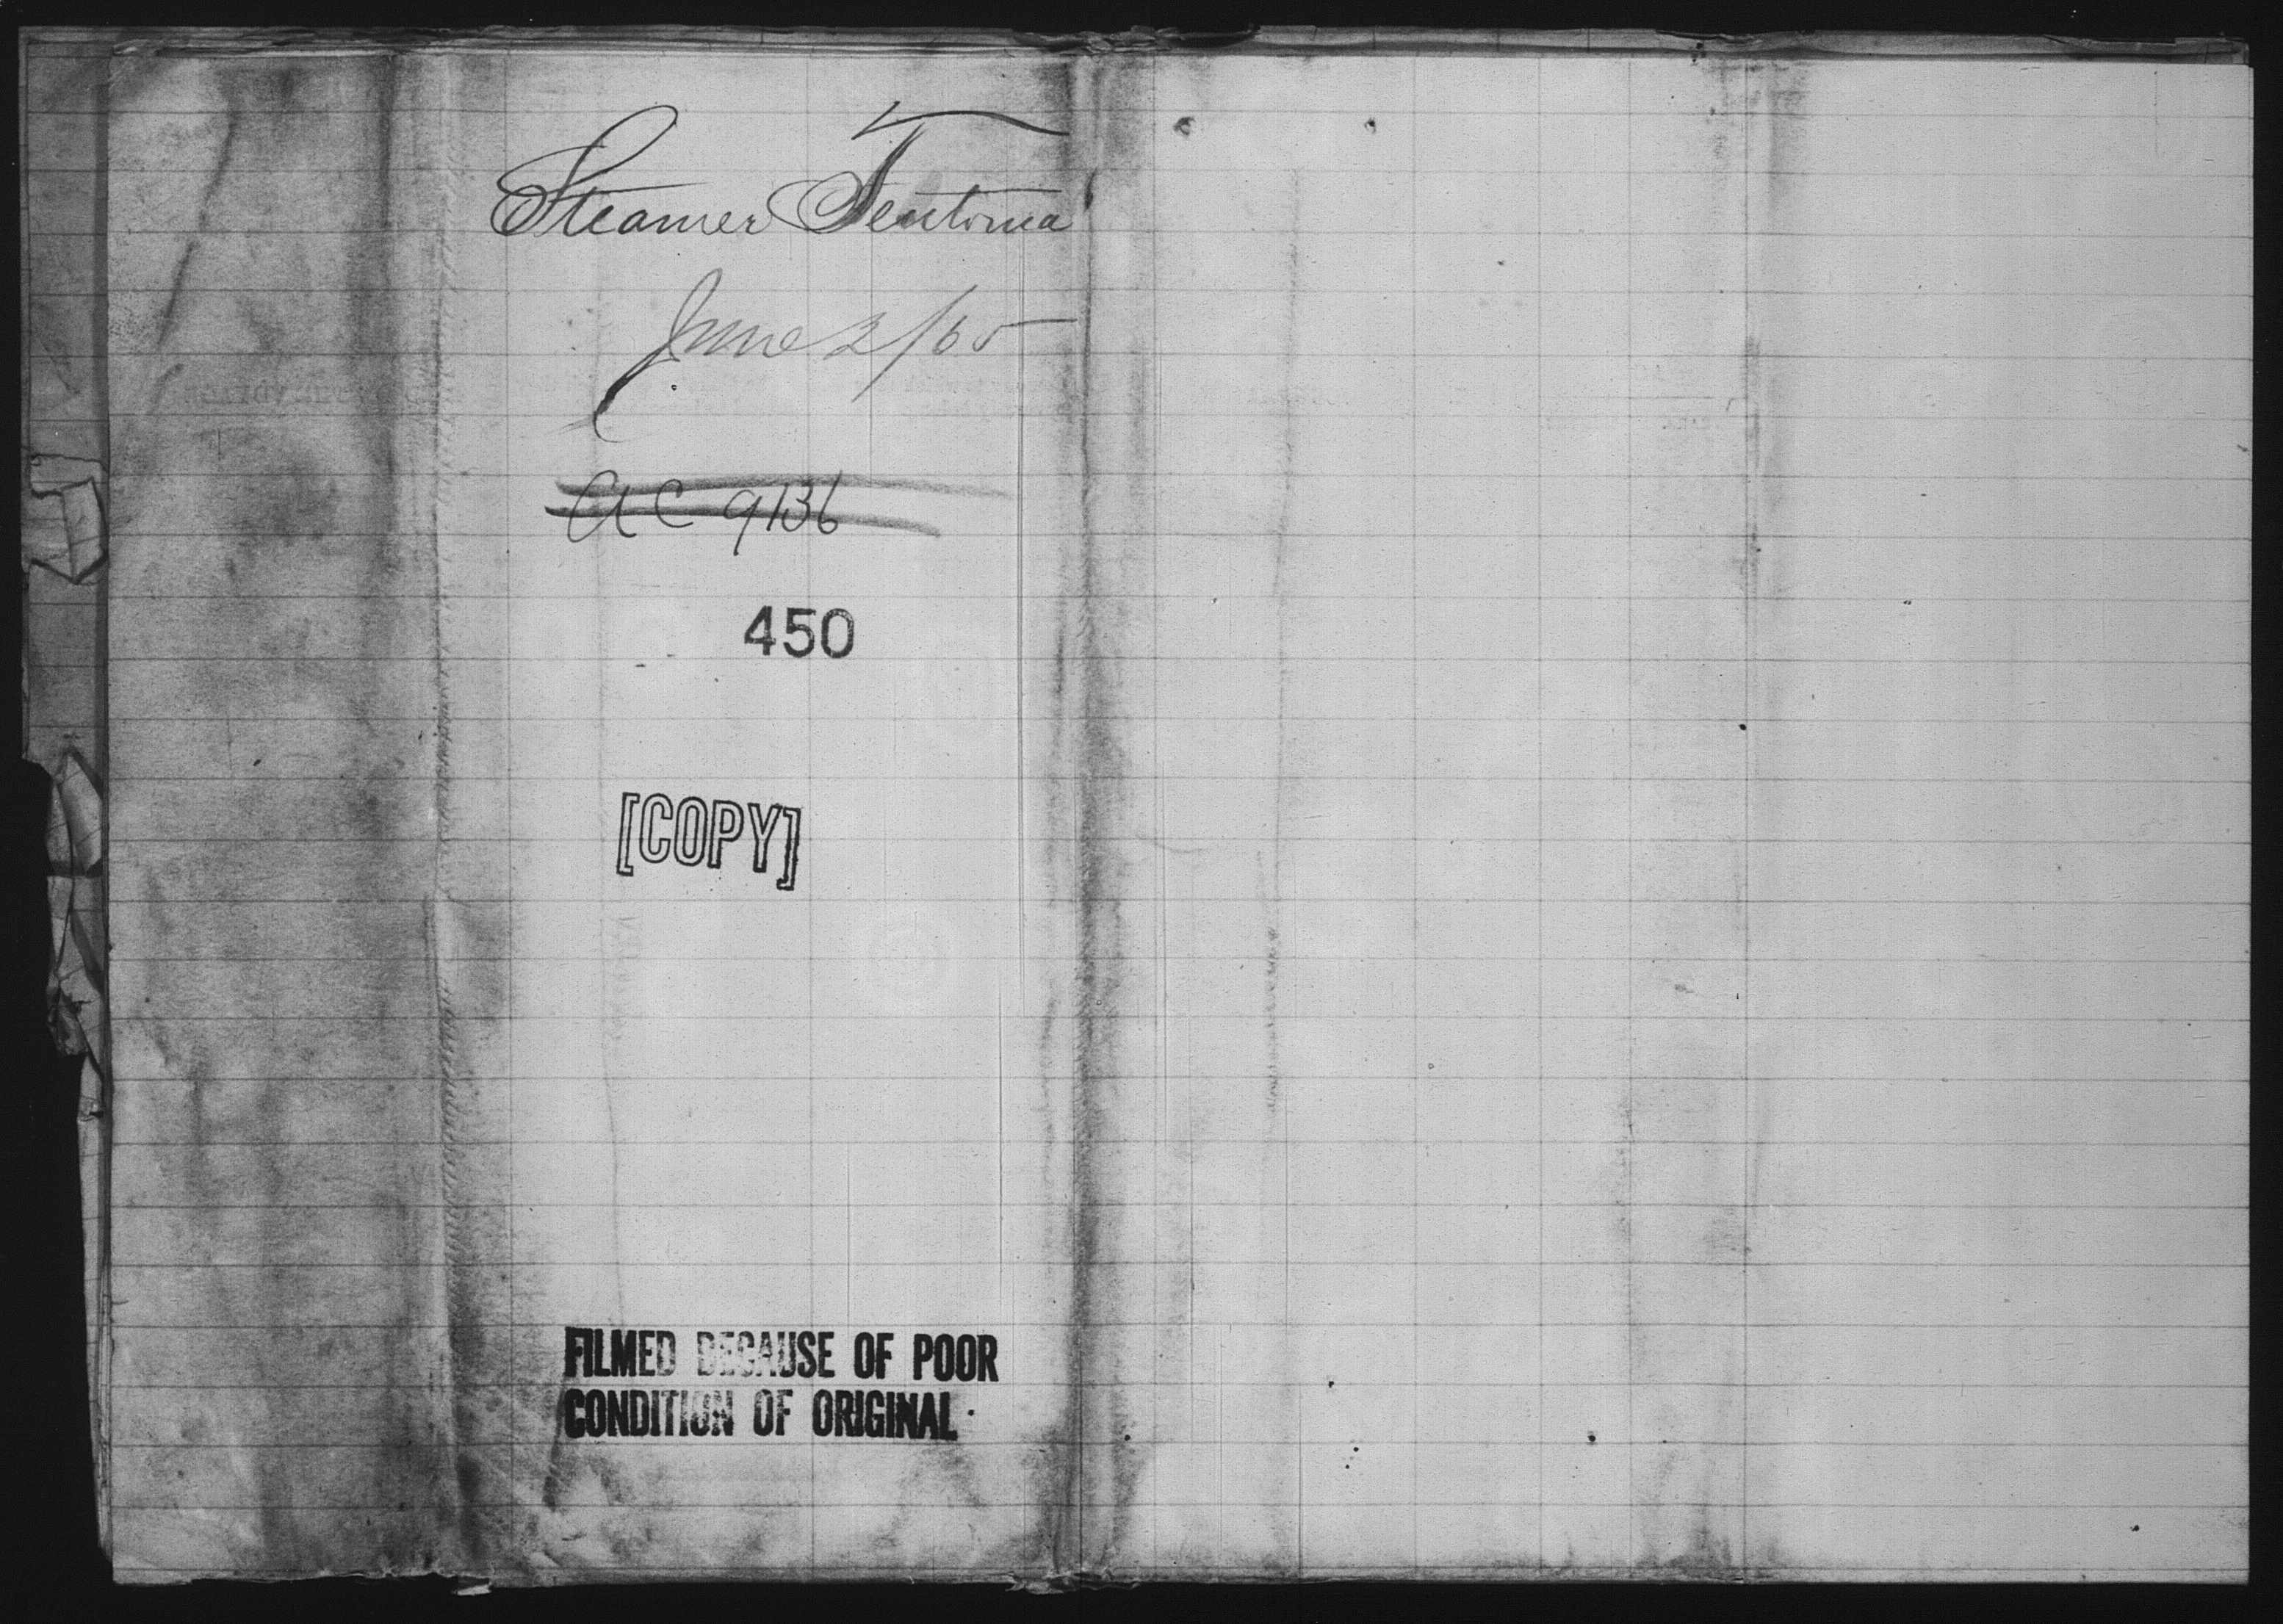 Steamer Teutonia
June 2/65
AC 9136
450
[COPY]
FILMED BECAUSE OF POOR
CONDITION OF ORIGINAL